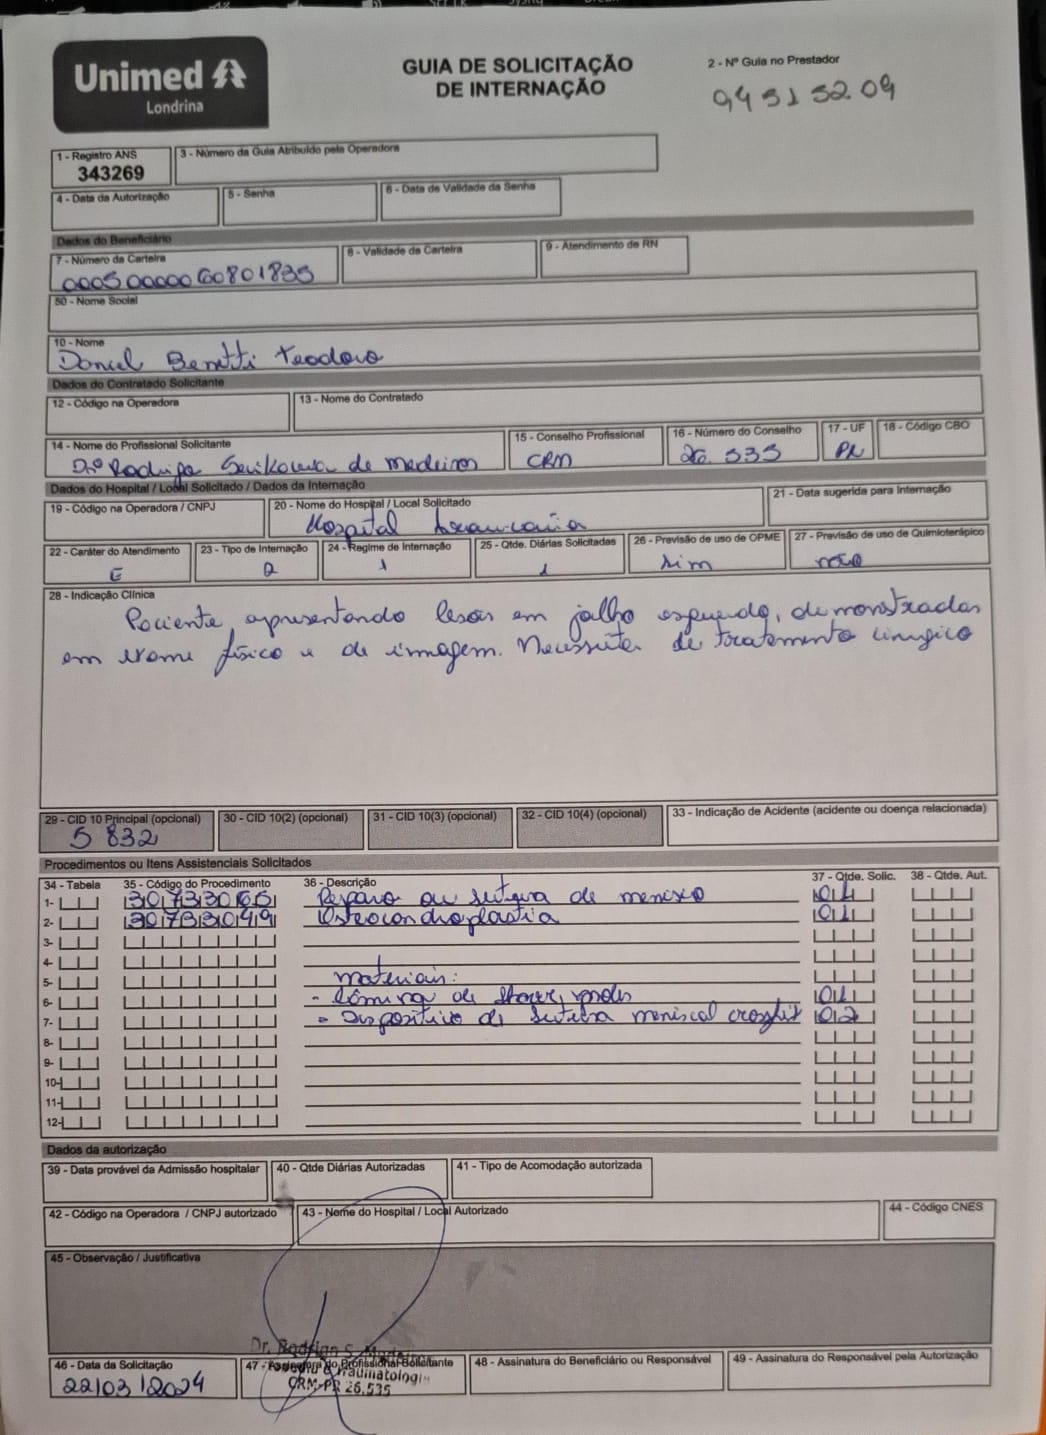 Unimed
Londrina
GUIA DE SOLICITAÇÃO
DE INTERNAÇÃO
2 - Nº Guia no Prestador
1 - Registro ANS
343269
3 - Número da Guia Atribuído pela Operadora
4 - Data da Autorização
5 - Senha
6 - Data de Validade da Senha
Dados do Beneficiário
7 - Número da Carteira
8 - Validade da Carteira
9 - Atendimento de RN
000500000060801835
50 - Nome Social
10 - Nome
Daniel Benetti Teodoro
Dados do Contratado Solicitante
12 - Código na Operadora
13 - Nome do Contratado
14 - Nome do Profissional Solicitante
15 - Conselho Profissional
16 - Número do Conselho
17 - UF
18 - Código CBO
Drº Rodrigo de Medeiros
CRM
26.535
PR
Dados do Hospital / Local Solicitado / Dados da Internação
19 - Código na Operadora / CNPJ
20 - Nome do Hospital / Local Solicitado
21 - Data sugerida para Internação
Hospital Araucária
22 - Caráter do Atendimento
23 - Tipo de Internação
24 - Regime de Internação
25 - Qtde. Diárias Solicitadas
26 - Previsão de uso de OPME
27 - Previsão de uso de Quimioterápico
E
2
1
1
sim
não
28 - Indicação Clínica
Paciente apresentando lesão em joelho esquerdo, demonstradas
em exame físico e de imagem. Necessita de tratamento cirurgico
29 - CID 10 Principal (opcional)
30 - CID 10(2) (opcional)
31 - CID 10(3) (opcional)
32 - CID 10(4) (opcional)
33 - Indicação de Acidente (acidente ou doença relacionada)
S 832
Procedimentos ou Itens Assistenciais Solicitados
34 - Tabela
35 - Código do Procedimento
36 - Descrição
37 - Qtde. Solic.
38 - Qtde. Aut.
1- Reparo ou sutura de menisco 01
2- 30733049 Osteocondroplastia 01
3-
4-
5- materiais:
6- - Lâmina de Shaver 01
7- - Dispositivo de sutura meniscal crossfix 02
8-
9-
10-
11-
12-
Dados da autorização
39 - Data provável da Admissão hospitalar
40 - Qtde Diárias Autorizadas
41 - Tipo de Acomodação autorizada
42 - Código na Operadora / CNPJ autorizado
43 - Nome do Hospital / Local Autorizado
44 - Código CNES
45 - Observação / Justificativa
Dr. Rodrigo S.
46 - Data da Solicitação
47 - Assinatura do Profissional Solicitante
48 - Assinatura do Beneficiário ou Responsável
49 - Assinatura do Responsável pela Autorização
22/03/2024
CRM-PR 26.535